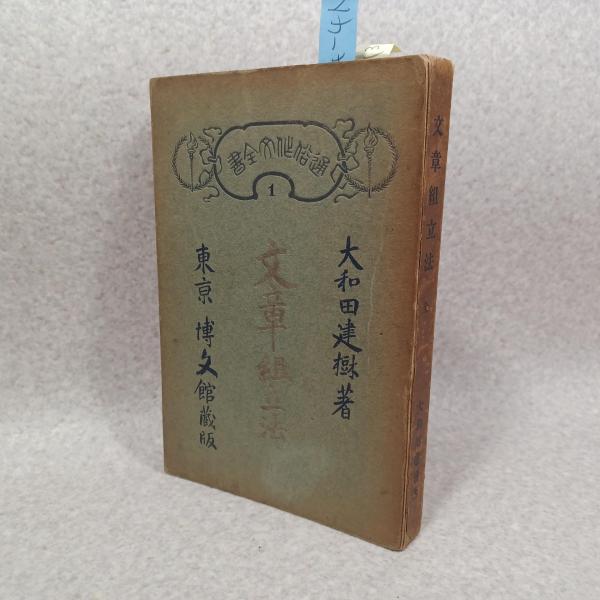 通俗作文全書
1
大和田建樹著
文章組立法
東京 博文館蔵版
文章組立法